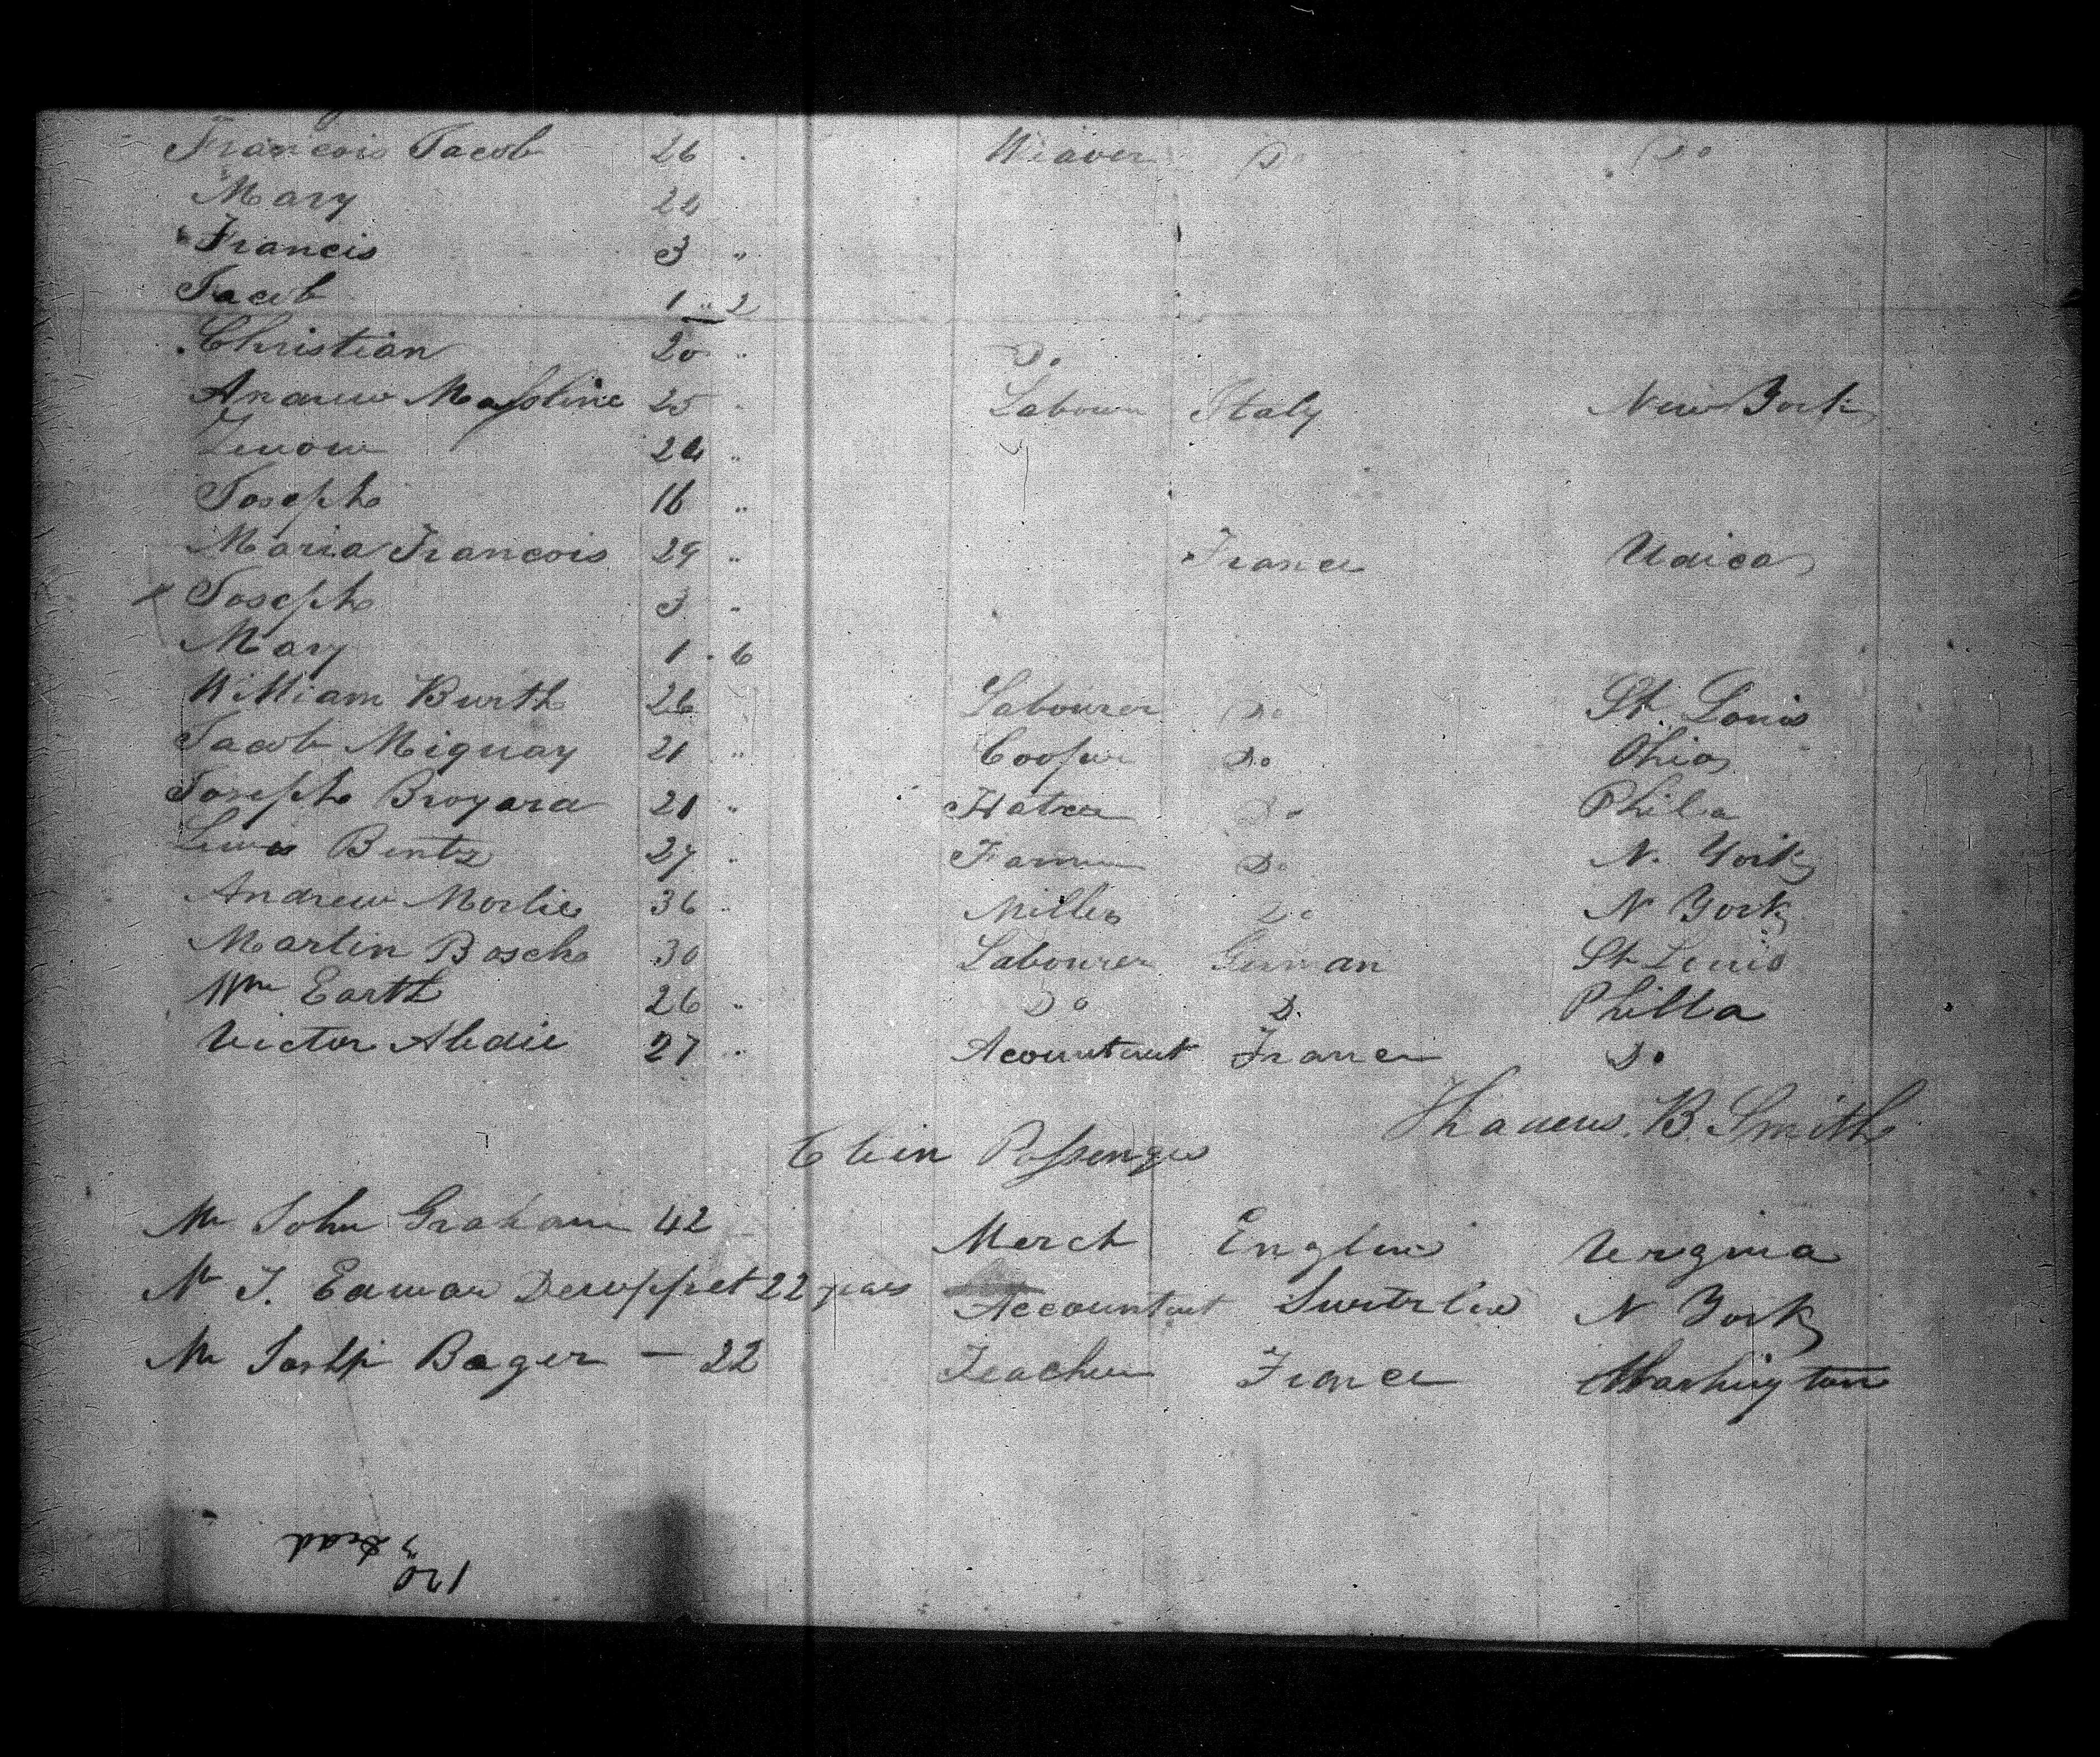 Francois Jacob 26 " Weaver Do Do
Mary 24
Francis 3 "
Jacob 1 " 2
Christian 20 " Do
Andrew Massline 25 " Labourer Italy New York
24 "
Joseph 16 "
Maria Francois 29 " France Utica
Joseph 3 "
Mary 1 . 6
William Burth 26 Labourer Do St. Louis
Jacob Miguay 21 " Cooper Do Ohio
Joseph Broyard 21 " Hatter Do Phila
Lewis Bentz 27 " Farmer Do N. York
Andrew Morlie 36 " Miller Do N York
Martin Bosch 30 Labourer German St Louis
Wm Earth 26 " Do D. Philla
Victor Abadie 27 " Acountant France Do
Thadeus. B. Smith
Cbin Passenger
Mr John Graham 42 Merch England Virginia
Mr J. Edward 22 years Accountant N York
Mr Bager — 22 Teacher France Washington
3 Dead
120